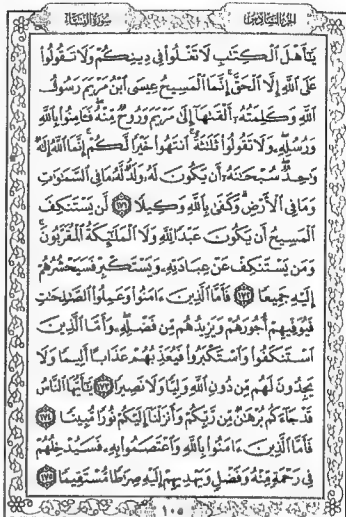 الجزء السادس سورة النساء
يَٰٓأَهۡلَ ٱلۡكِتَٰبِ لَا تَغۡلُواْ فِي دِينِكُمۡ وَلَا تَقُولُواْ
عَلَى ٱللَّهِ إِلَّا ٱلۡحَقَّۚ إِنَّمَا ٱلۡمَسِيحُ عِيسَى ٱبۡنُ مَرۡيَمَ رَسُولُ
ٱللَّهِ وَكَلِمَتُهُۥٓ أَلۡقَىٰهَآ إِلَىٰ مَرۡيَمَ وَرُوحٞ مِّنۡهُۖ فَـَٔامِنُواْ بِٱللَّهِ
وَرُسُلِهِۦۖ وَلَا تَقُولُواْ ثَلَٰثَةٌۚ ٱنتَهُواْ خَيۡرٗا لَّكُمۡۚ إِنَّمَا ٱللَّهُ إِلَٰهٞ
وَٰحِدٞۖ سُبۡحَٰنَهُۥٓ أَن يَكُونَ لَهُۥ وَلَدٞۘ لَّهُۥ مَا فِي ٱلسَّمَٰوَٰتِ
وَمَا فِي ٱلۡأَرۡضِۗ وَكَفَىٰ بِٱللَّهِ وَكِيلٗا ١٧١ لَّن يَسۡتَنكِفَ
ٱلۡمَسِيحُ أَن يَكُونَ عَبۡدٗا لِّلَّهِ وَلَا ٱلۡمَلَٰٓئِكَةُ ٱلۡمُقَرَّبُونَۚ
وَمَن يَسۡتَنكِفۡ عَنۡ عِبَادَتِهِۦ وَيَسۡتَكۡبِرۡ فَسَيَحۡشُرُهُمۡ
إِلَيۡهِ جَمِيعٗا ١٧٢ فَأَمَّا ٱلَّذِينَ ءَامَنُواْ وَعَمِلُواْ ٱلصَّٰلِحَٰتِ
فَيُوَفِّيهِمۡ أُجُورَهُمۡ وَيَزِيدُهُم مِّن فَضۡلِهِۦۖ وَأَمَّا ٱلَّذِينَ
ٱسۡتَنكَفُواْ وَٱسۡتَكۡبَرُواْ فَيُعَذِّبُهُمۡ عَذَابًا أَلِيمٗا وَلَا
يَجِدُونَ لَهُم مِّن دُونِ ٱللَّهِ وَلِيّٗا وَلَا نَصِيرٗا ١٧٣ يَٰٓأَيُّهَا ٱلنَّاسُ
قَدۡ جَآءَكُم بُرۡهَٰنٞ مِّن رَّبِّكُمۡ وَأَنزَلۡنَآ إِلَيۡكُمۡ نُورٗا مُّبِينٗا ١٧٤
فَأَمَّا ٱلَّذِينَ ءَامَنُواْ بِٱللَّهِ وَٱعۡتَصَمُواْ بِهِۦ فَسَيُدۡخِلُهُمۡ
فِي رَحۡمَةٖ مِّنۡهُ وَفَضۡلٖ وَيَهۡدِيهِمۡ إِلَيۡهِ صِرَٰطٗا مُّسۡتَقِيمٗا ١٧٥
١٠٥